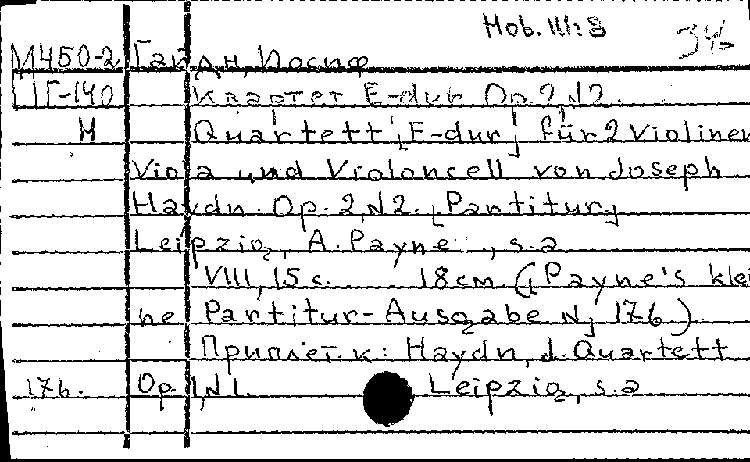 Hob. III: 8
M450-2 Гайдн, Иосиф
Ш Г-140 Квартет E-dur Op. 2, N2.
Н Quartett [E-dur] für 2 Violinen
Viola und Violoncell von Joseph
Haydn. Op. 2, N2. [Partitur]
Leipzig, A. Payne, s.a
VIII, 15 c. 18 cm ([Payne's klei
ne Partitur-Ausgabe N] 176)
Приплет. к: Haydn, J. Quartett
176. Op. 1, N1. Leipzig, s.a